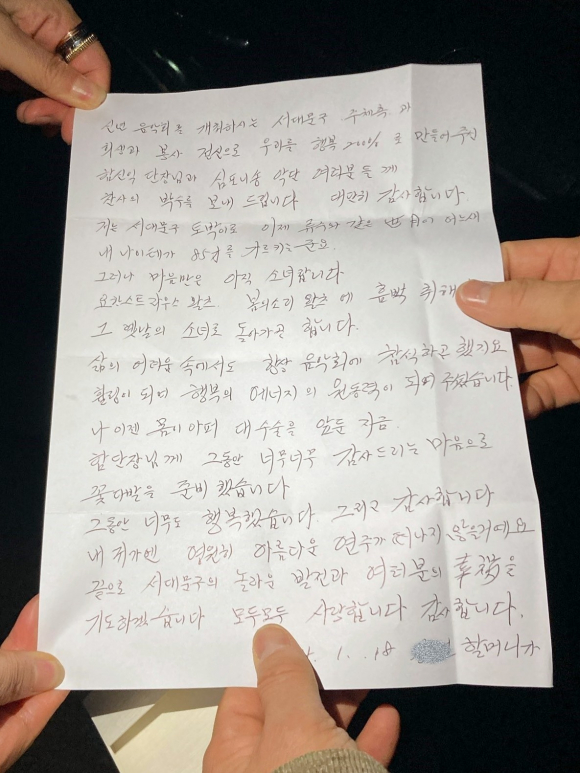 신년 음악회를 개최하시는 서대문구 주최측과
희생과 봉사 정신으로 우리를 행복 200% 로 만들어주신
함신익 단장님과 심포니송 악단 여러분들께
찬사의 박수를 보내 드립니다 대단히 감사합니다.
저는 서대문구 토박이로 이제 유수와 같은 歲月이 어느새
내 나이테가 85세를 가르키는군요.
그러나 마음만은 아직 소녀랍니다
요한스트라우스 왈츠. 봄의소리 왈츠에 흠뻑 취해
그 옛날의 소녀로 돌아가곤 합니다.
삶의 어려움 속에서도 항상 음악회에 참석하곤 했지요
힐링이 되며 행복의 에너지의 원동력이 되며 주셨습니다.
나 이젠 몸이 아퍼 대수술을 앞둔 지금.
함단장님께 그동안 너무너무 감사드리는 마음으로
꽃다발을 준비했습니다
그동안 너무도 행복했습니다. 그리고 감사합니다
내 귀가엔 영원히 아름다운 연주가 떠나지 않을거예요
끝으로 서대문구의 놀라운 발전과 여러분의 幸福을
기도하겠습니다 모두모두 사랑합니다 감사합니다.
1. .18 할머니가